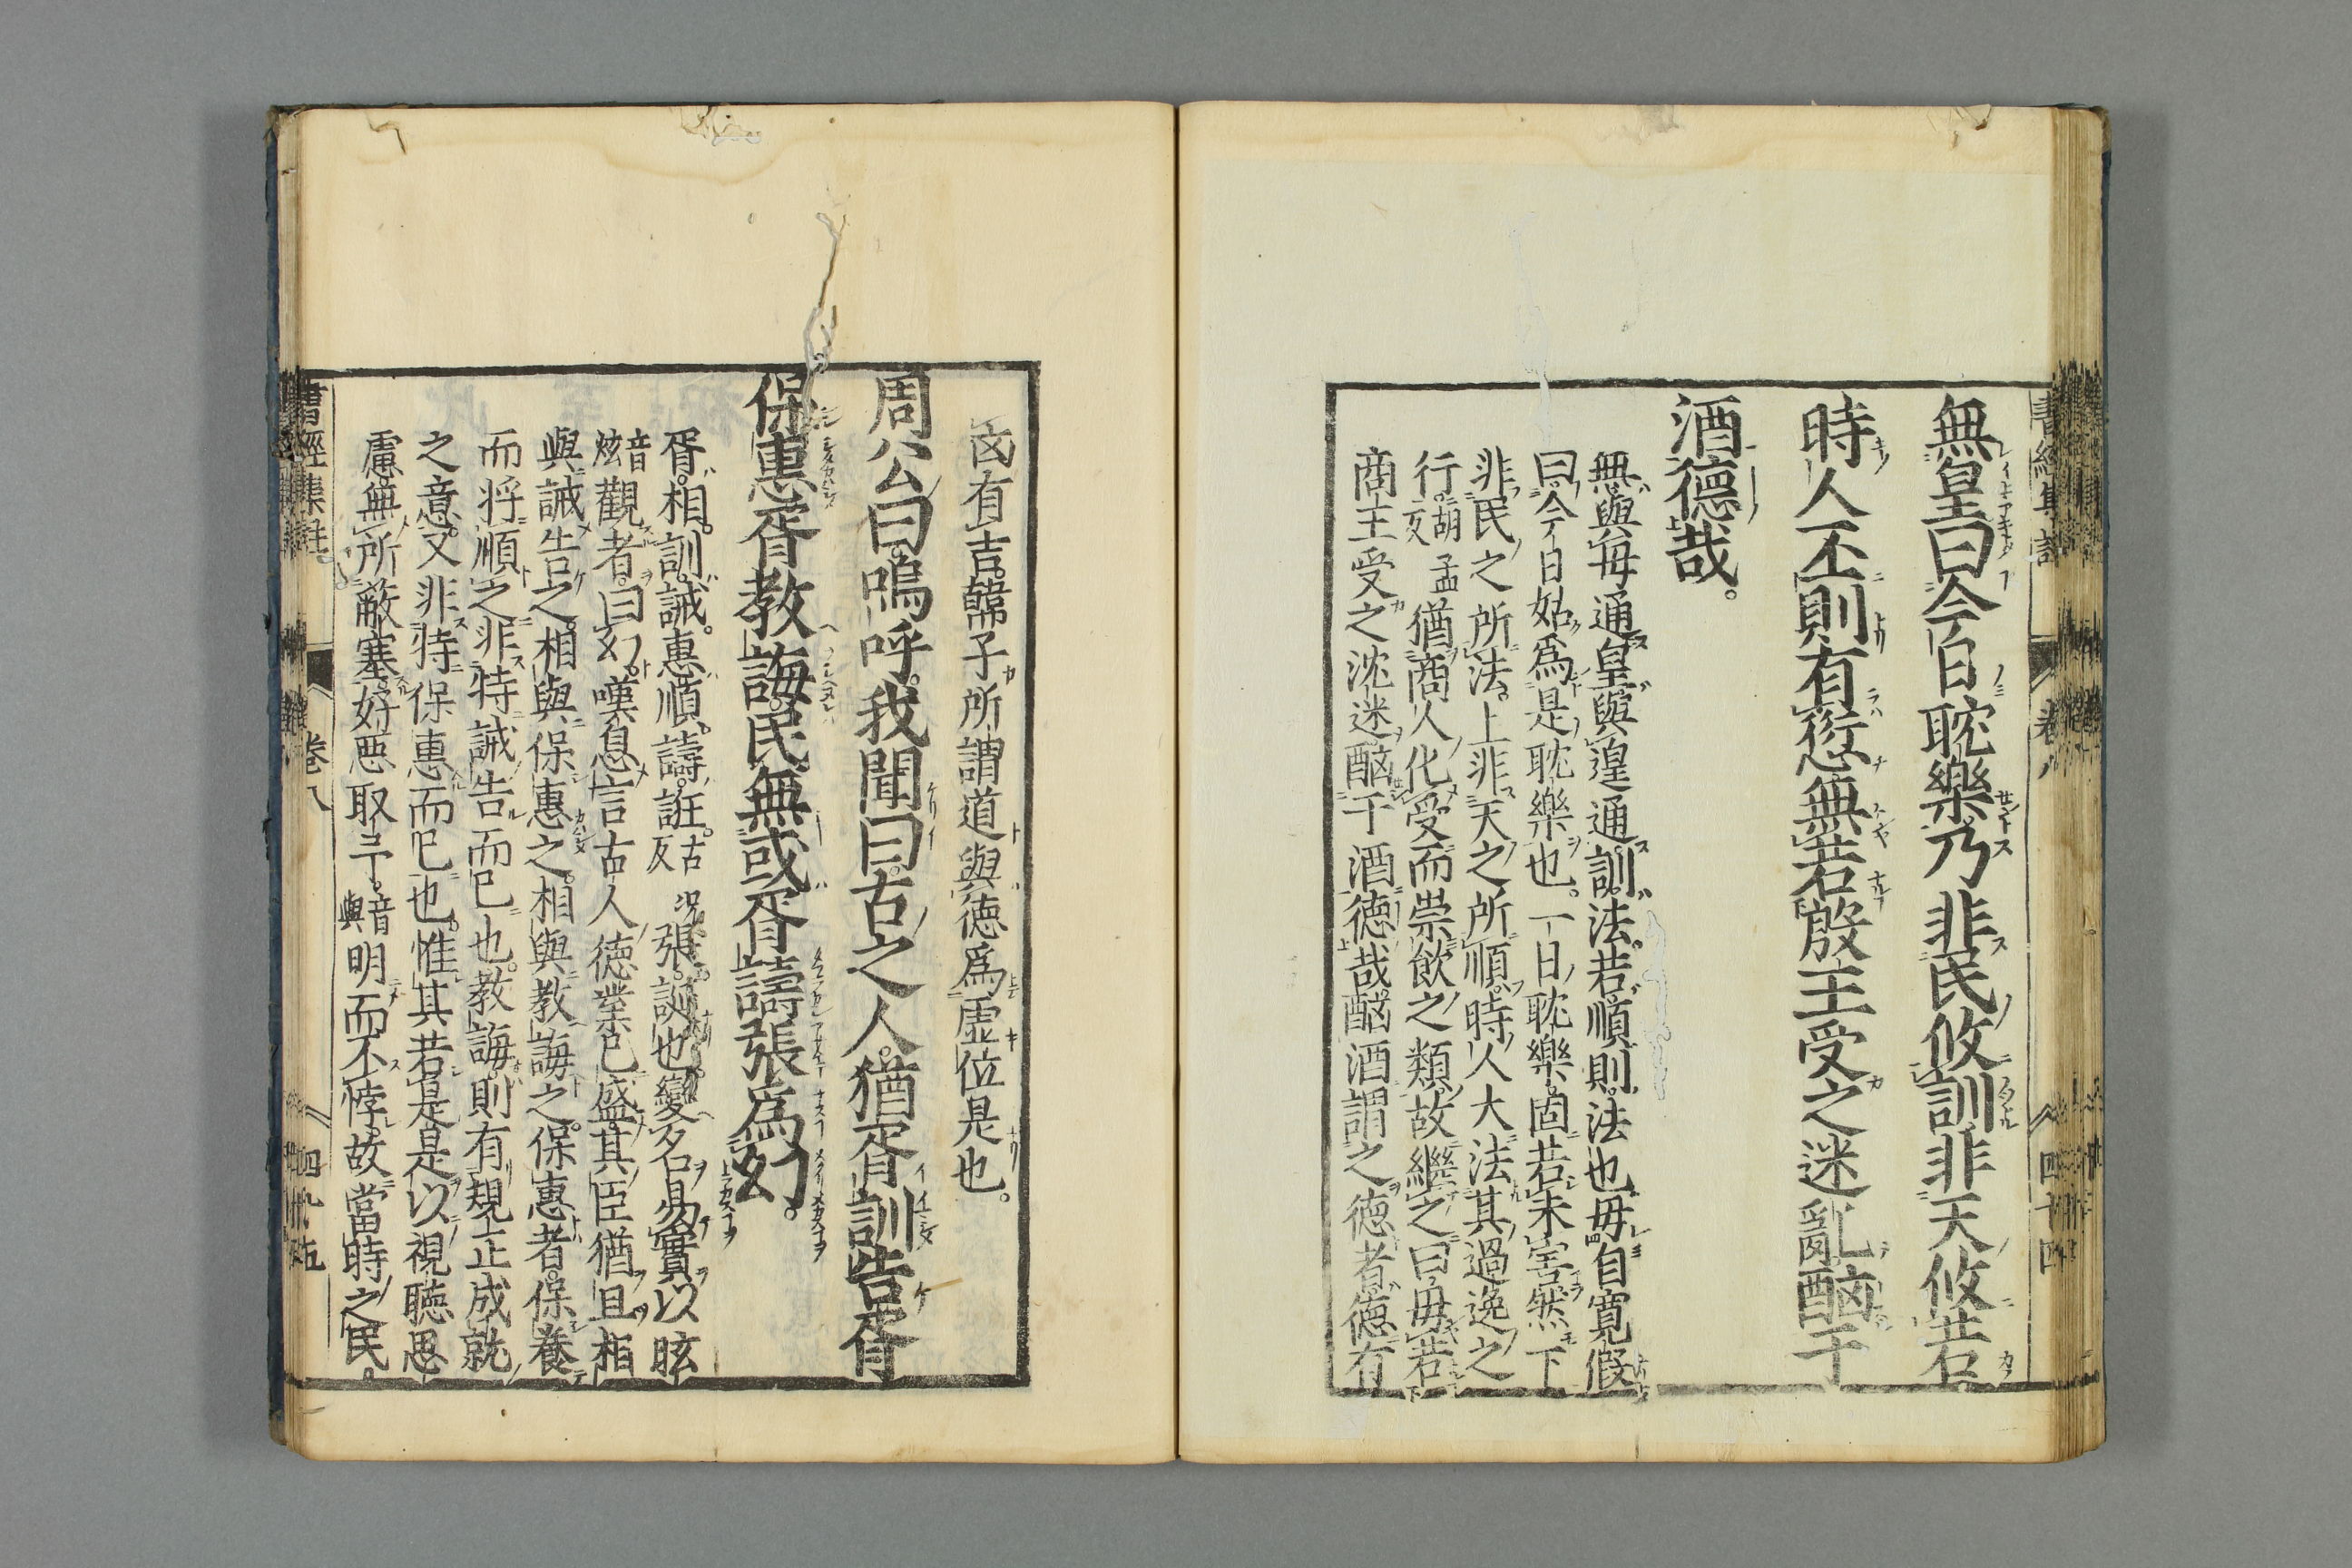 無皇曰今日耽樂乃非民攸訓非天攸若。
時人丕則有愆無若殷王受之迷亂酗于
酒德哉。
無與毋通皇與遑通訓法。若順則法也毋自寬假
曰今日姑爲是耽樂也。一日耽樂固若未害然下
非民之所法。上非天之所順。時人大法其過逸之
行。胡孟反猶商人化受而崇飲之類。故繼之曰毋若
商王受之沈迷酗于酒德哉。酗酒謂之德者德有
凶有吉。韓子所謂道與德爲虛位是也。
周公曰。嗚呼。我聞曰。古之人。猶胥訓告胥
保惠胥教誨。民無或胥譸張爲幻。
胥。相。訓。誡。惠順。譸。誑。古況反張。誕也變名易實以眩
音炫觀者。曰幻。嘆息言古人德業已盛其臣猶且相
與誡告之。相與保惠之。相與教誨之。保惠者。保養
而將順之。非特誡告而已也。教誨。則有規正成就
之意。又非特保惠而已也。惟其若是。是以視聽思
慮。無所蔽塞。好惡取予。音與明而不悖。故當時之民。
書經集註 卷八 四十五